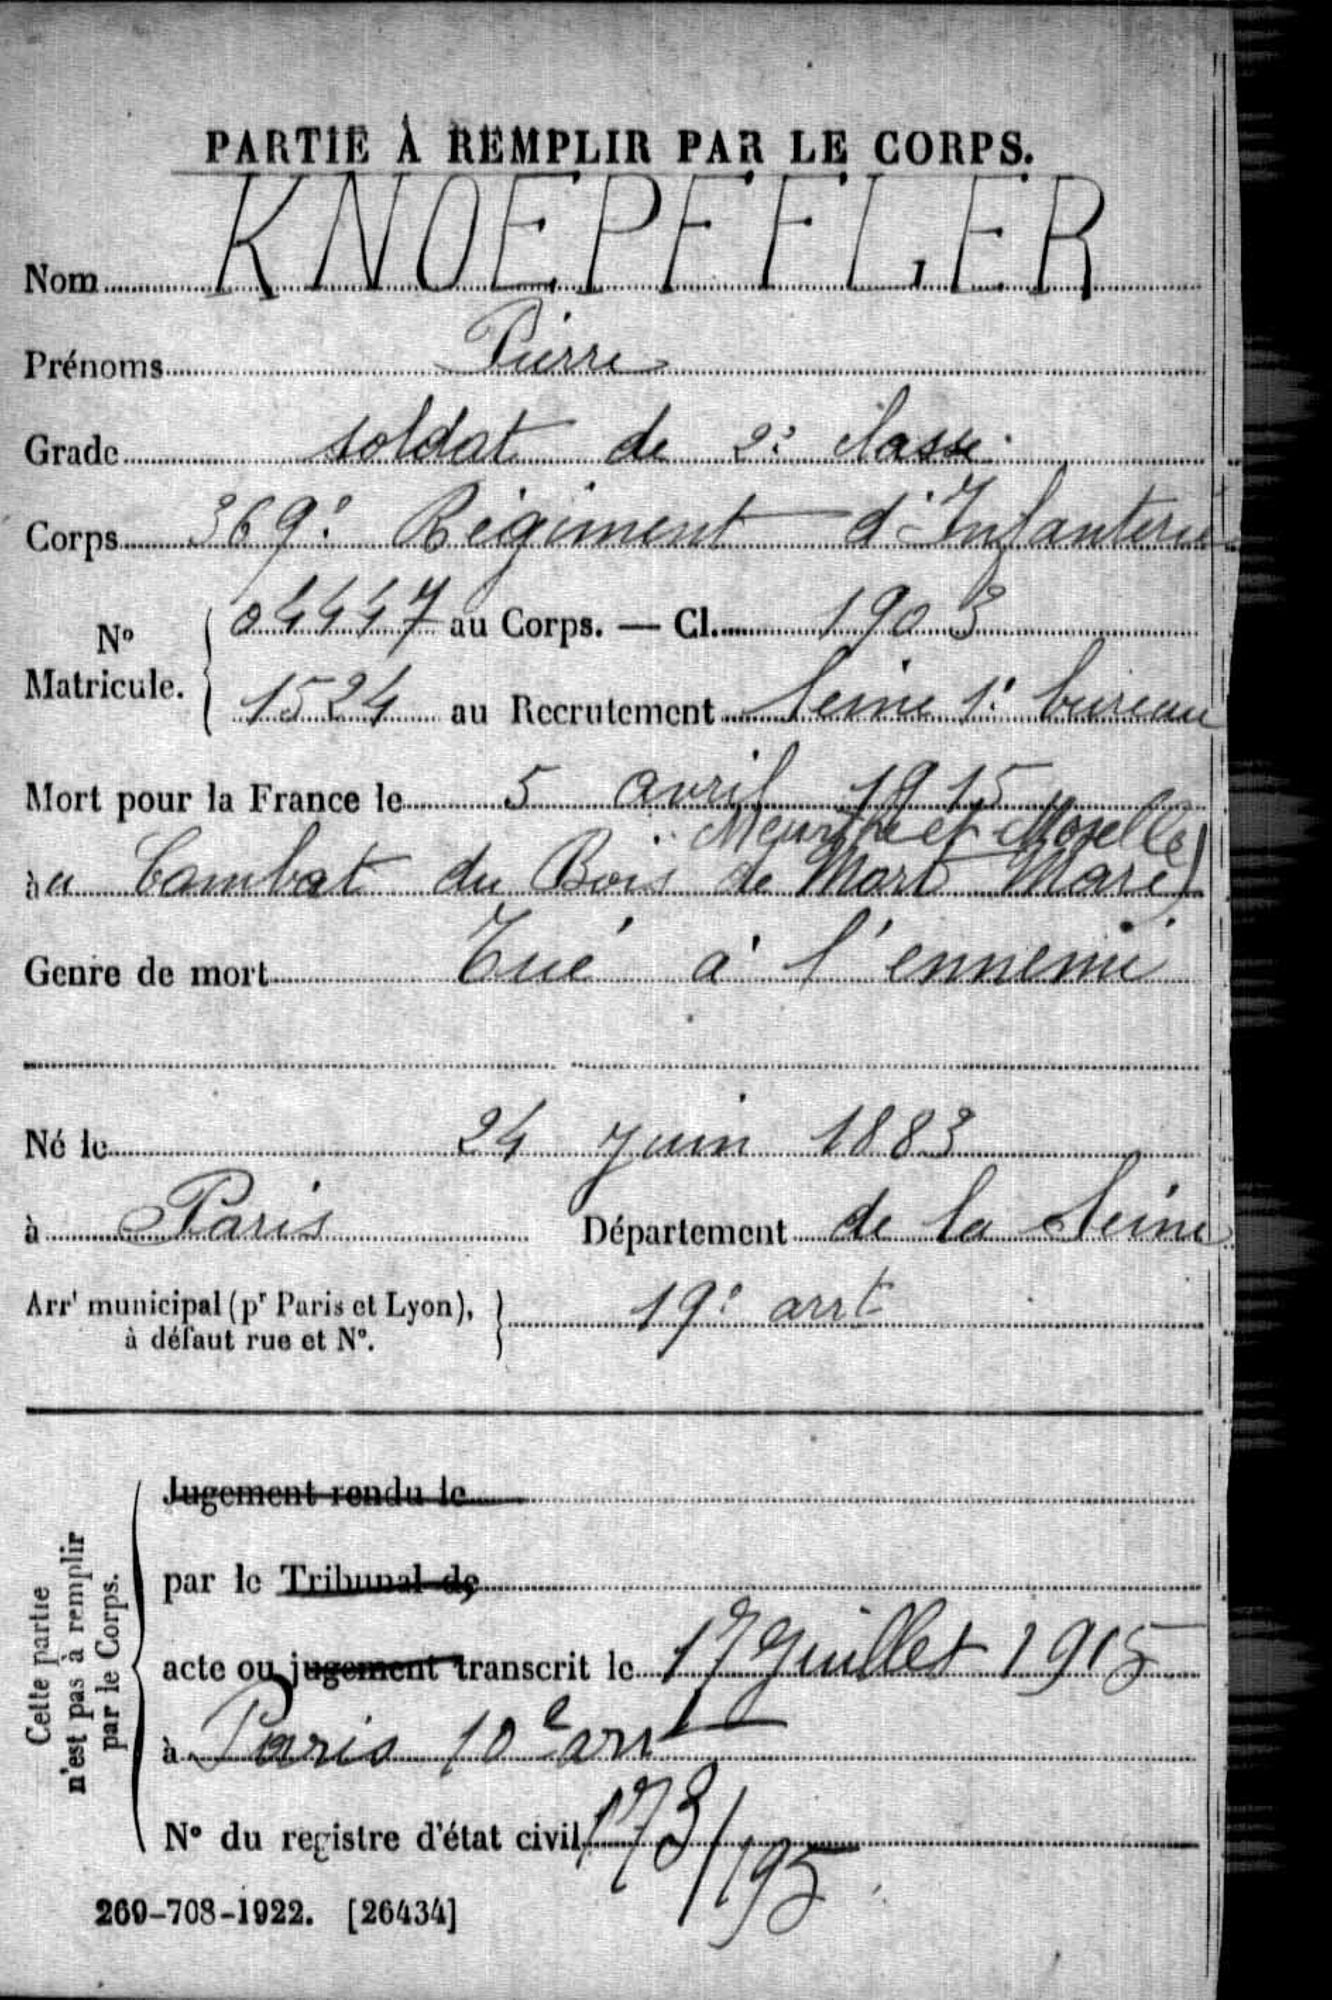 PARTIE À REMPLIR PAR LE CORPS.
Nom KNOEPFFLER
Prénoms Pierre
Grade soldat de 2e classe
Corps 369e Régiment d'Infanterie
N° Matricule. 04447 au Corps. — Cl. 1903
1524 au Recrutement Seine 1e bureau
Mort pour la France le 5 avril 1915
Meurthe et Moselle)
au Combat du Bois de Mort Mare)
Genre de mort Tué à l'ennemi
Né le 24 juin 1883
à Paris Département de la Seine
Arrt municipal (pr Paris et Lyon), 19e arrt
à défaut rue et N°.
Cette partie
n'est pas à remplir
par le Corps.
Jugement rendu le
par le Tribunal de
acte ou jugement transcrit le 17 Juillet 1915
à Paris 10e arrt
N° du registre d'état civil 173/195
269-708-1922. [26434]